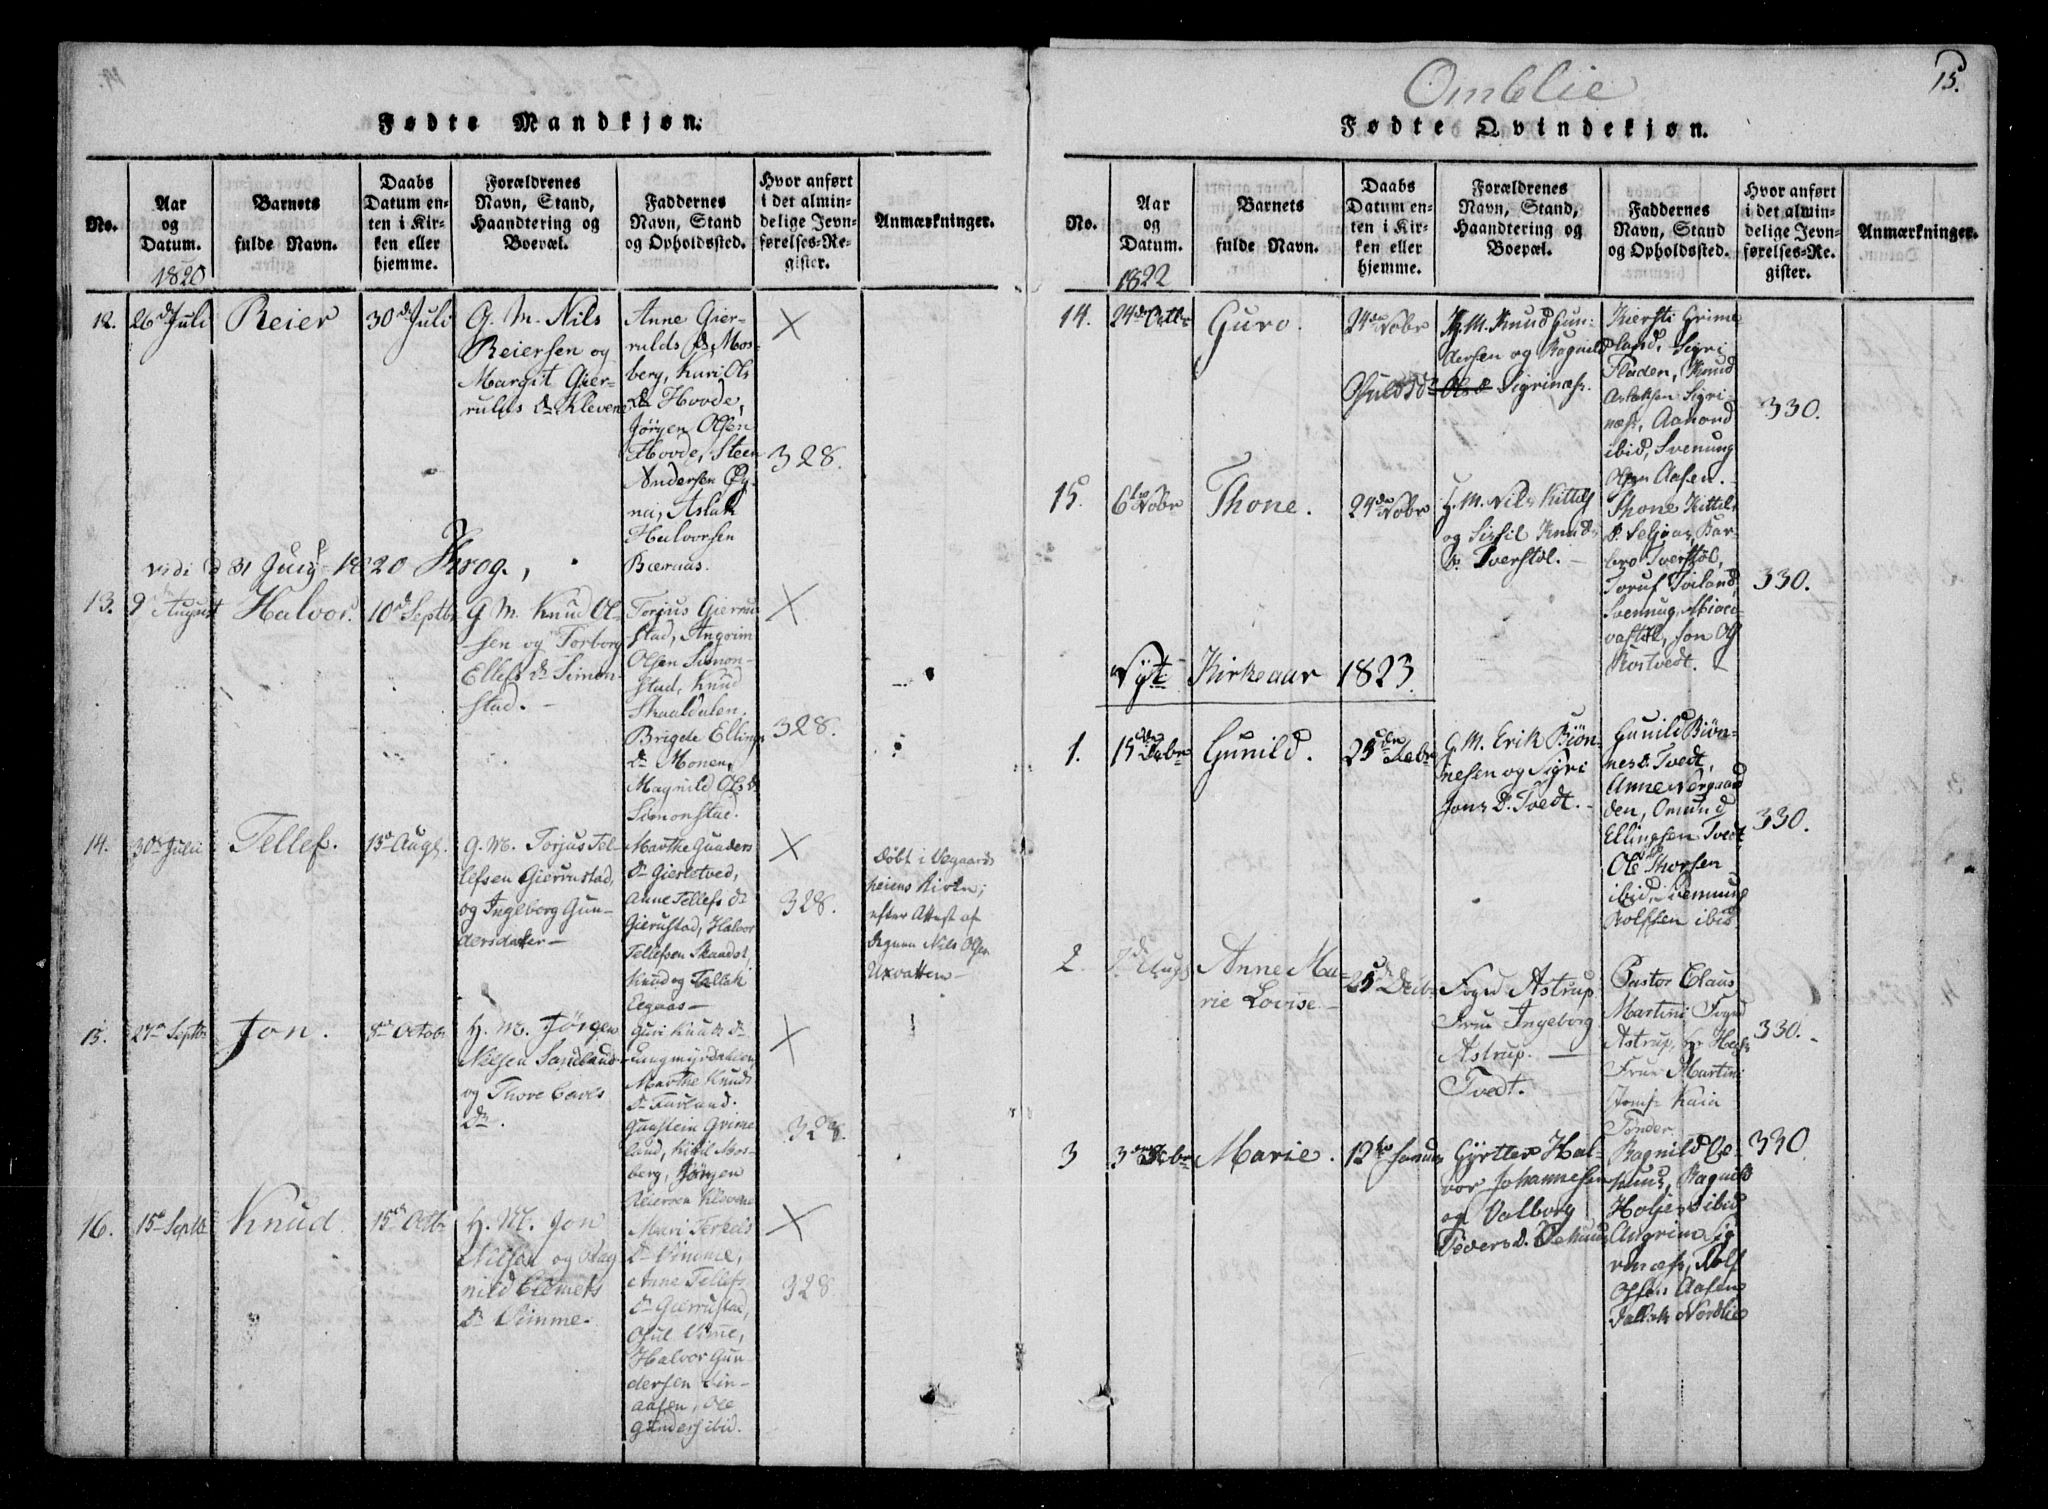 Omblie
15.
Fødte Mandkjøn.
No.
Aar
og
Datum.
1820
Barnets
fulde Navn.
Daabs
Datum en-
ten i Kir-
ken eller
hjemme.
Forældrenes
Navn, Stand,
Haandtering og
Boepæl.
Faddernes
Navn, Stand
og Opholdssted.
Hvor anført
i det almin-
delige Jevn-
førelses-Re-
gister.
Anmærkninger.
12.
26d Juli
Reier
30d Juli
G. M. Nils
Reiersen og
Margit Gier-
rulds Dr Klevene
Anne Gier-
rulds D Mos-
berg, Kari Ols
Dr Hovde,
Jørgen Olsen
Hovde, Steen
Andersen
Aslak
Halvorsen
328.
vidi d 31 July 1820 Krog,
13.
9 August
Halvor.
10d Septbr
G. M. Knud Ol-
sen og Torborg
Ellefs Dr Simon-
stad.
Torjus Gierru-
stad, Angrim
Olsen Simon-
stad, Knud
Skaaldalen.
Brigete Ellings
Dr Monen,
Magnild Ols D
Simonstad.
328.
14.
30 Juli
Tellef.
13 Aug.
G. M. Torjus Tel-
lefsen Gierrustad,
og Ingeborg Gun-
dersdatter
Marthe Gunders
Dr Gierletved,
Anne Tellefs Dr
Gierustad, Halvor
Tellefsen
Knud og Tellak
Eegaas
328.
Døbt i Vegaards
heiens Kirke;
efter Attest af
Degnen Nils Olsen
Uxvatten
15.
27 Septbr
Jon.
8 Octobr
H. M. Jørgen
Nilsen Sandland
og Thore
Dr.
Guri Knuds Dr
Marthe Knuds
Gunstein Grime
land, Kittil Mos-
berg, Jørgen
Reiersen Klevene
328.
16.
15 Septbr
Knud
15 Octbr
H. M. Jon
Nilsen og Rag
nild Clemets
Dr Vimme.
Mari Terkels
Dr Vimme,
Anne Tellefs
Dr Gierrustad,
Osul Vime,
Halvor Gun
dersen Lin-
aasen, Ole
Gunders ibid.
328
Fødte Qvindekjøn.
No.
Aar
og
Datum.
1822
Barnets
fulde Navn.
Daabs
Datum en-
ten i Kir-
ken eller
hjemme.
Forældrenes
Navn, Stand,
Haandtering og
Boepæl.
Faddernes
Navn, Stand
og Opholdssted.
Hvor anført
i det almin-
delige Jevn-
førelses-Re-
gister.
Anmærkninger.
14.
24de Octbr
Guro.
24de Nobr
H. M. Knud Gun-
dersen og Ragnild
Osulds Dr Ols D Sigrinæs.
Kiersti Grime
land, Sigri
Fladen, Knud
Aslaksen Sigri-
næs, Aamond
ibid, Svenung
Olsen Aasen.
330.
15.
6te Nobr
Thone.
24de Nobr
H. M. Nils Kittels
og Sissil Knuds
D. Tverstøl.
Thone Kittels
D. Seljaas, Bar-
bro Tverstøl,
Toruf Tviland,
330.
Nyt Kirkeaar 1823.
1.
15de Debr
Gunild.
25de Debr
G. M. Erik Biøn-
nesen og Sigri
Jons D. Tvedt.
Gunild Biøn-
nes D. Tvedt,
Anne Vergaad
den, Omund
Ellingsen Tvedt,
Ole Thorsen
ibid,
Rolfsen ibid
330.
2
Anne Ma-
rie Lovise.
25de Decbr
Foged Astrup
Frue Ingeborg
Astrup.
Tvedt.
Pastor Claus
Martini Foged
Astrup,
Frue Martini
Jomf. Kaia
Tønder
330.
3
Marie.
12te Januar
Gyrtler Hal-
vor Johannesen
og Valborg
Ragnild
ibid
Angrim Sig
rinæs, Rolf
Olsen Aasen
Tallak Nordlie
330